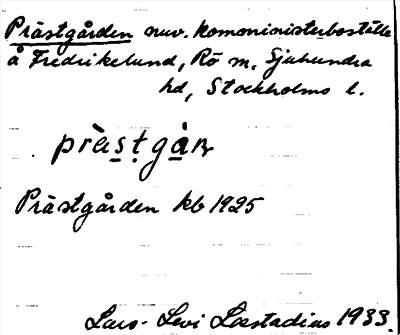 Prästgården nuv. komministerboställe
å Fredrikelund, Rö sn, Sjuhundra
hd, Stockholms l.
prä̀s̲ṭgå̀ṇ
Prästgården kb 1925
Lars-Levi Læstadius 1933.